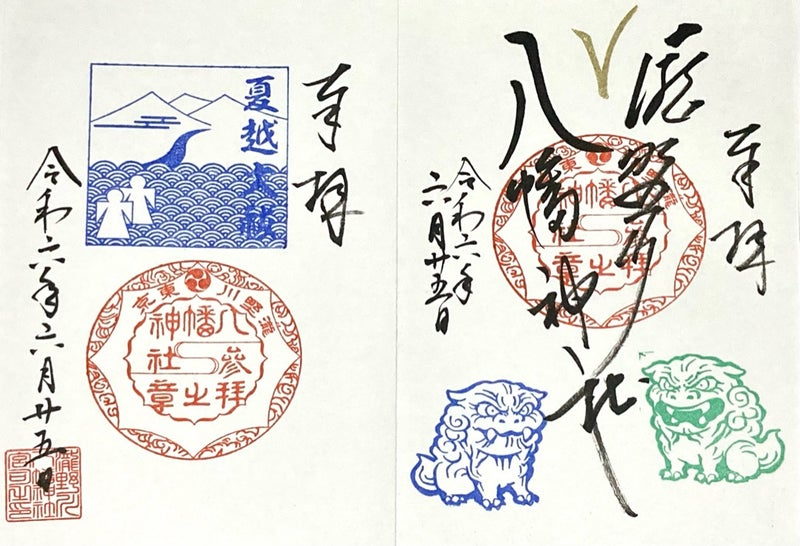 奉拝
滝野川
八幡神社
令和六年
六月廿五日
東京
瀧野川
八幡神社
参拝之章
奉拝
夏越大祓
令和六年六月廿五日
東京
瀧野川
八幡神社
參拜之章